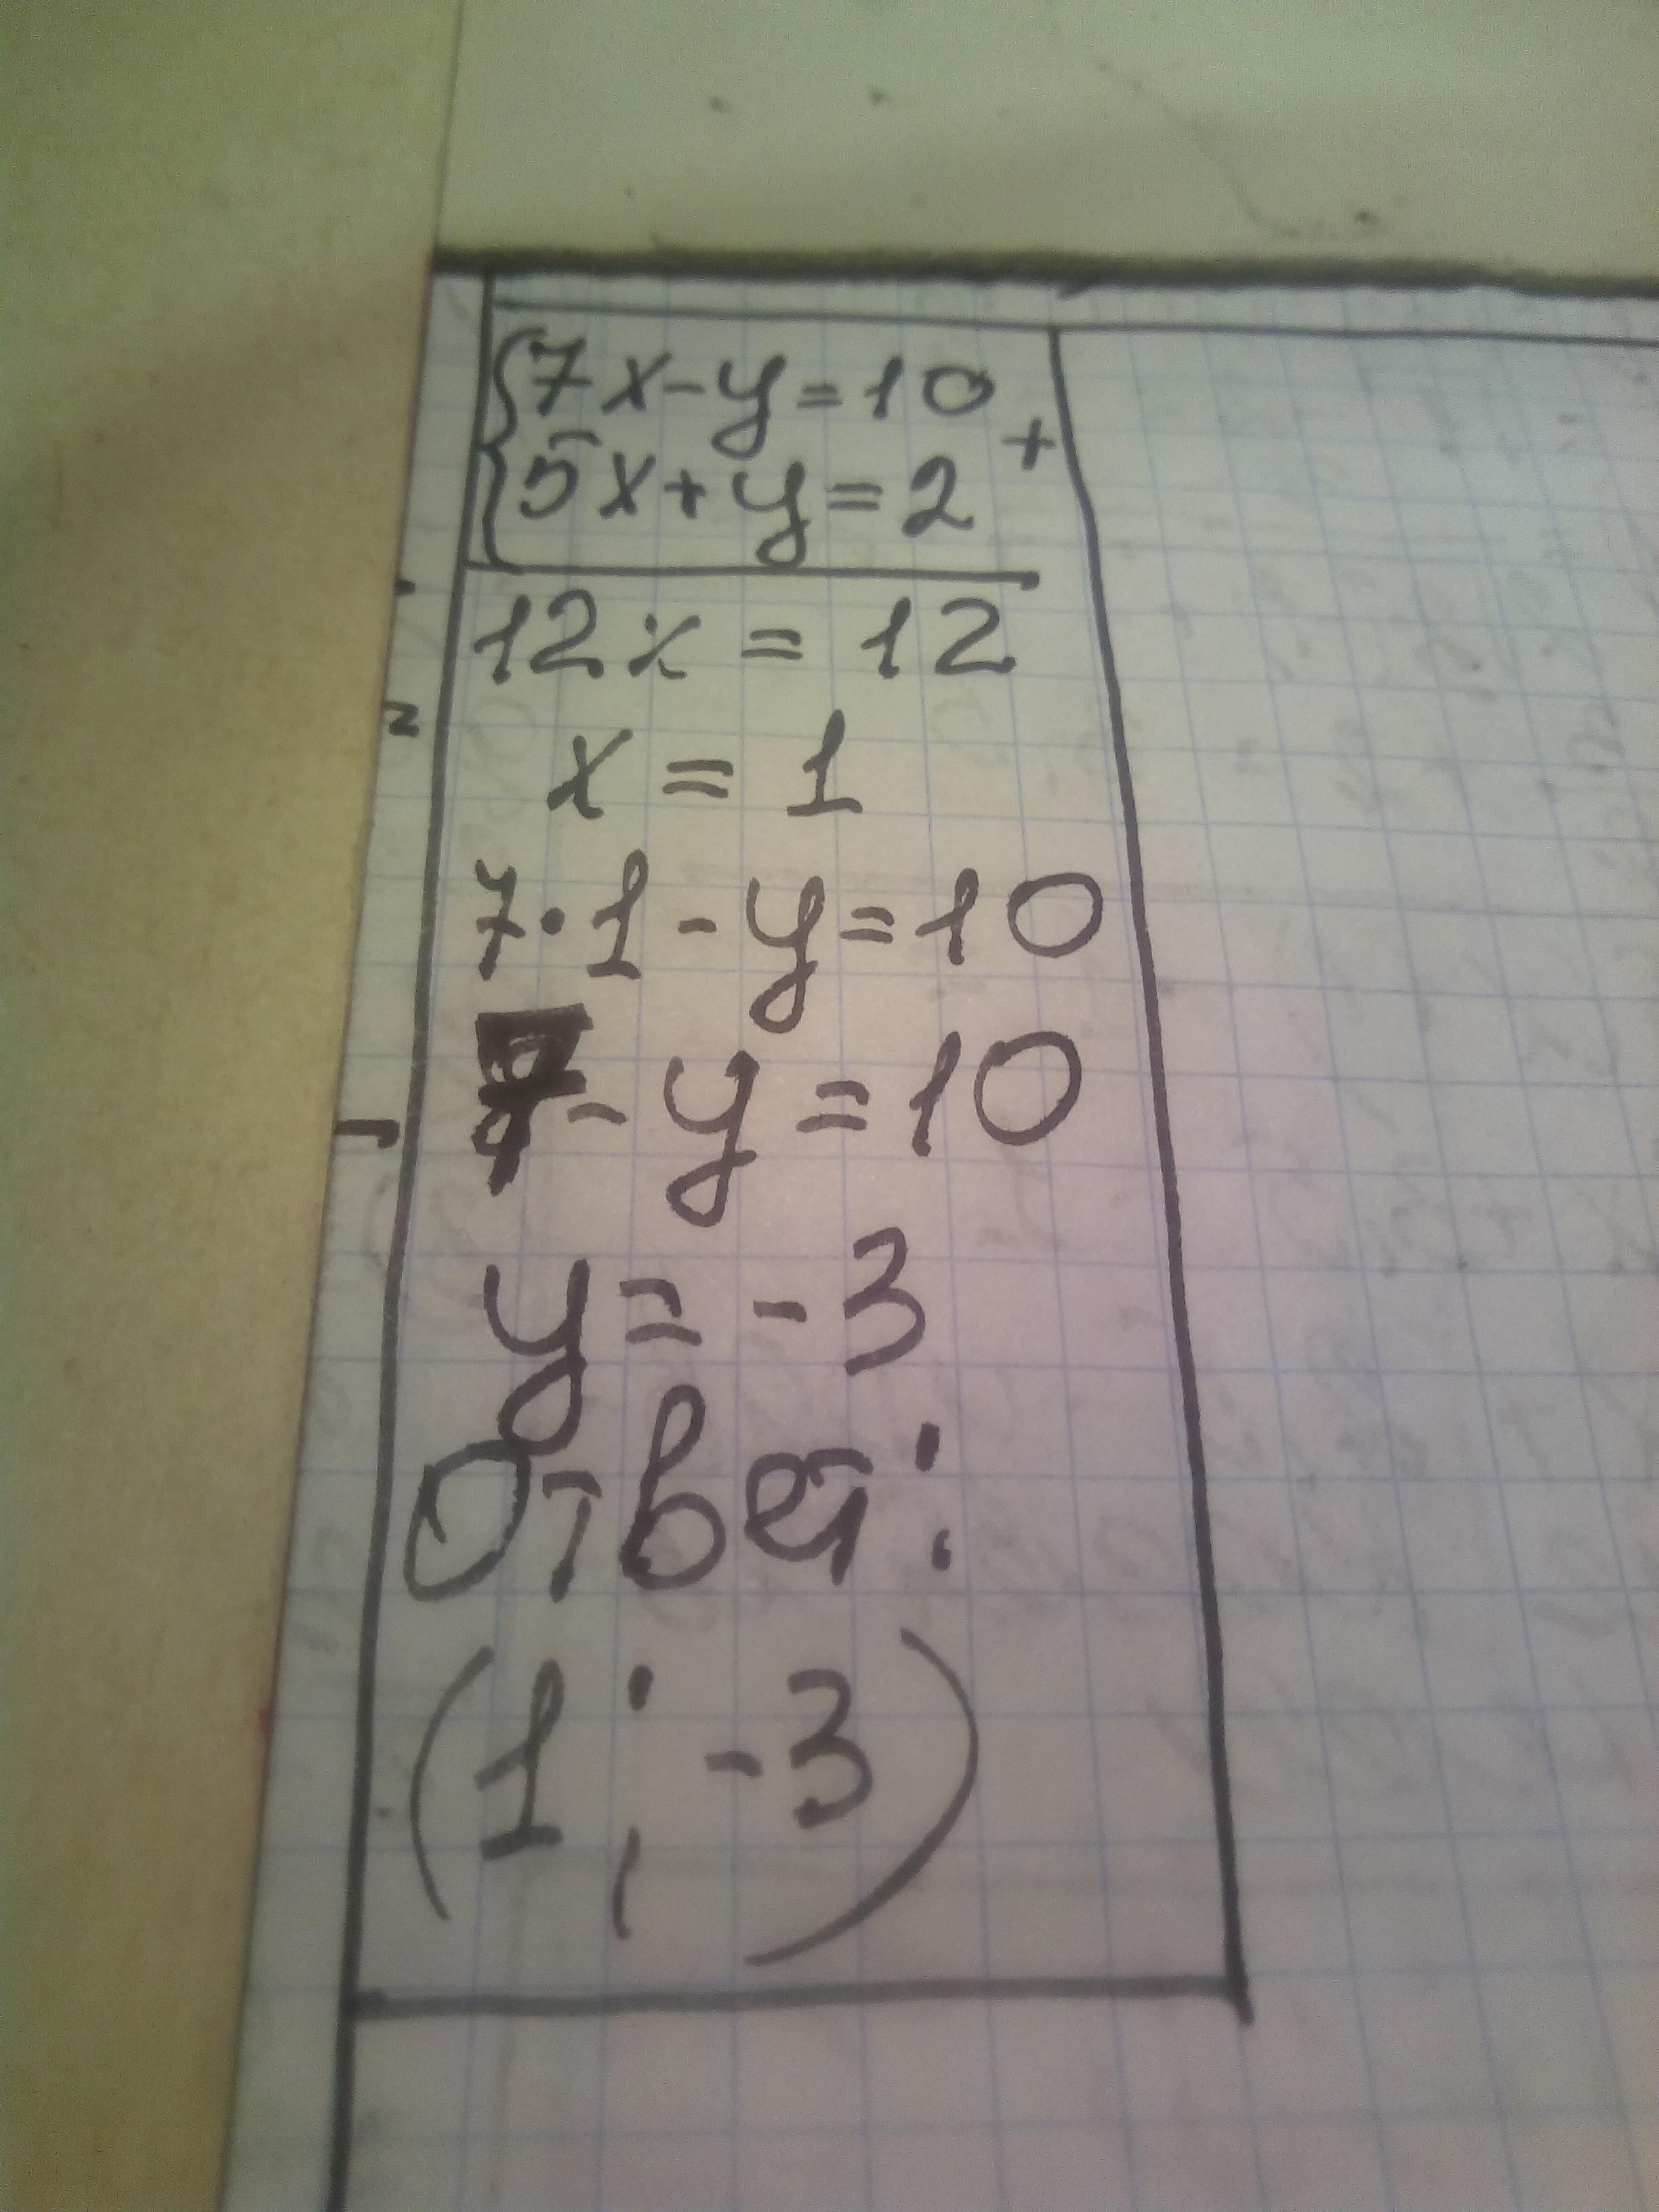 {7x-y=10
{5x+y=2 +
12x = 12
x = 1
7·1-y=10
7-y=10
y=-3
Ответ:
(1; -3)